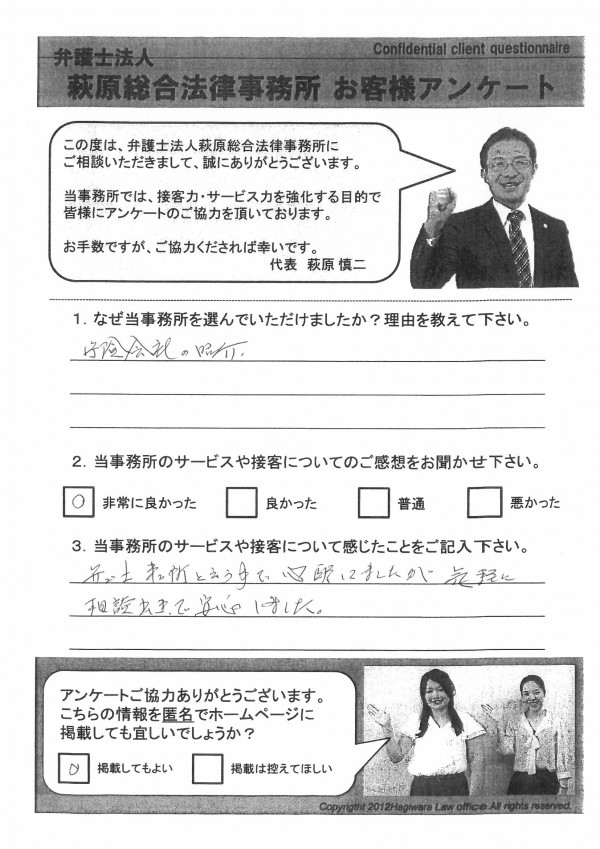 弁護士法人
Confidential client questionnaire
萩原総合法律事務所 お客様アンケート
この度は、弁護士法人萩原総合法律事務所に
ご相談いただきまして、誠にありがとうございます。
当事務所では、接客力・サービス力を強化する目的で
皆様にアンケートのご協力を頂いております。
お手数ですが、ご協力くだされば幸いです。
代表 萩原 慎二
1. なぜ当事務所を選んでいただけましたか？理由を教えて下さい。
保険会社の紹介
2. 当事務所のサービスや接客についてのご感想をお聞かせ下さい。
○ 非常に良かった 良かった 普通 悪かった
3. 当事務所のサービスや接客について感じたことをご記入下さい。
心配してましたが 気軽に
相談出来て安心しました。
アンケートご協力ありがとうございます。
こちらの情報を匿名でホームページに
掲載しても宜しいでしょうか？
○ 掲載してもよい 掲載は控えてほしい
Copyritght 2012Hagiwara Law office.All rights reserved.